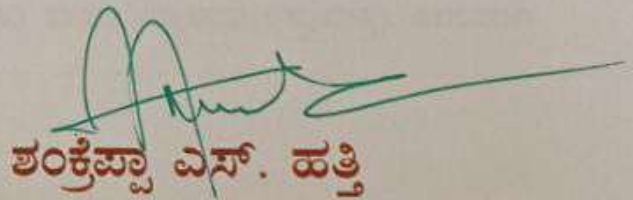 ಶಂಕ್ರೆಪ್ಪಾ ಎಸ್. ಹತ್ತಿ